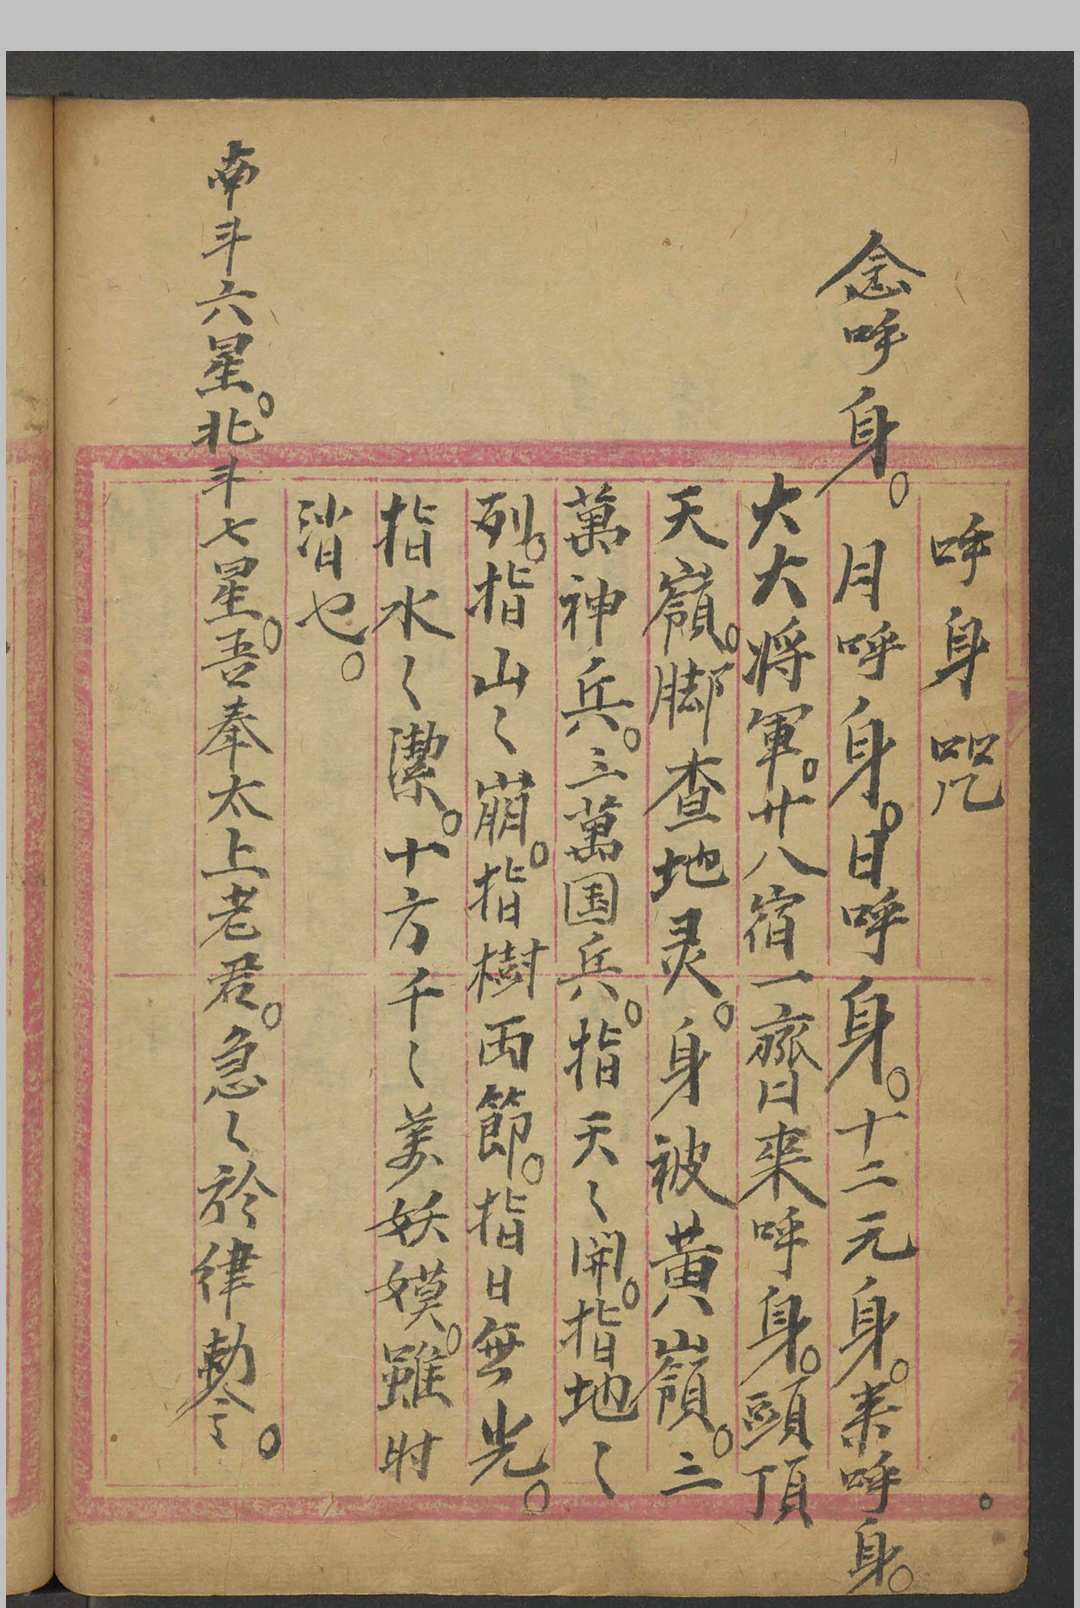 呼身咒
念呼身。月呼身。日呼身。十二元身。来呼身。
大大将軍。廿八宿一齊来呼身。頭頂
天嶺。脚查地灵。身被黄嶺。三
萬神兵。三萬国兵。指天〻開。指地〻
列。指山〻崩。指樹両節。指日無光。
指水〻潔。十方千〻萬妖嫫。雖时
消也。
南斗六星。北斗七星。吾奉太上老君。急〻於律勅令。